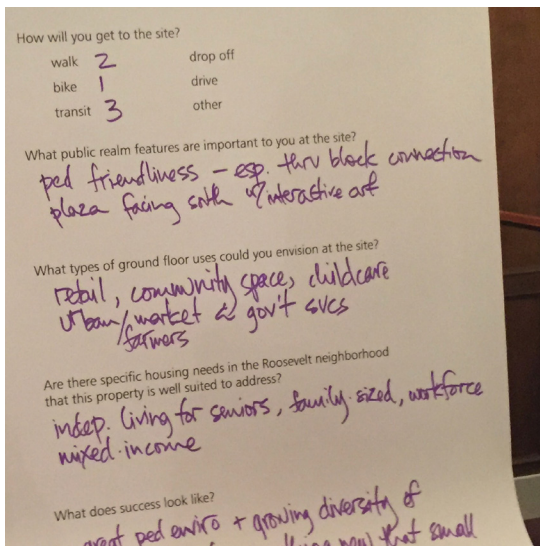 How will you get to the site?
walk 2 drop off
bike 1 drive
transit 3 other
What public realm features are important to you at the site?
ped friendliness - esp. thru block connection
plaza facing w/ interactive art
What types of ground floor uses could you envision at the site?
retail, community space, childcare
urban/market & gov't svcs
farmers
Are there specific housing needs in the Roosevelt neighborhood
that this property is well suited to address?
indep. living for seniors, family-sized, workforce
mixed-income
What does success look like?
great ped enviro + growing diversity of
that small